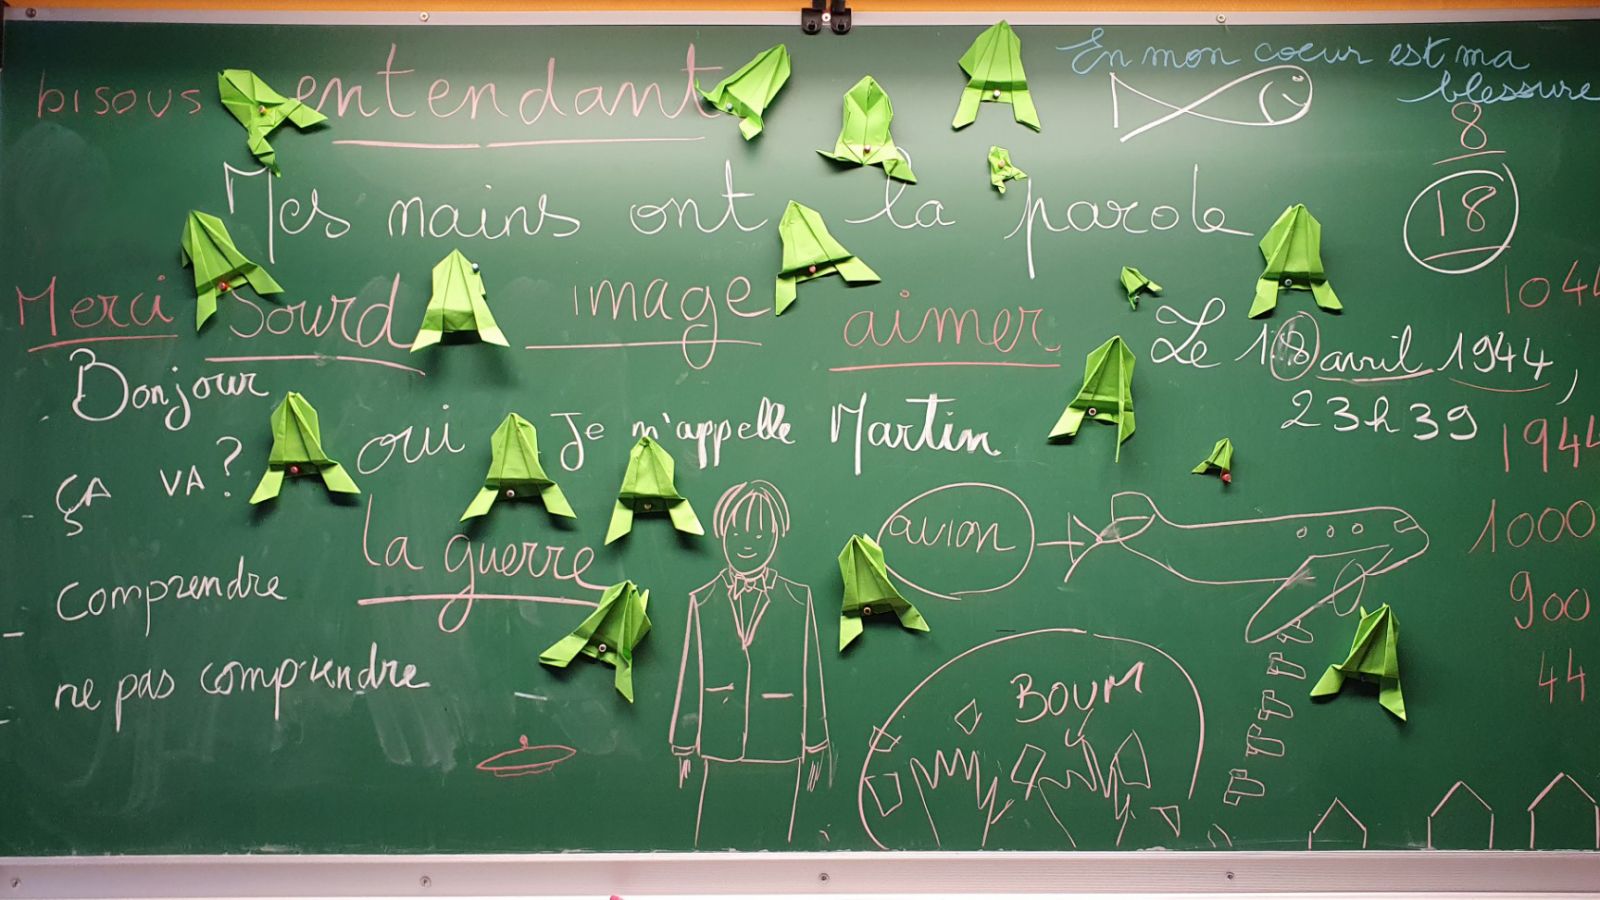 En mon coeur est ma
blessure
bisous entendant
8
Mes mains ont la parole
18
Merci Sourd image aimer
104
Le 18 avril 1944,
23h39
Bonjour
oui Je m'appelle Martin
1944
ça va?
la guerre
avion
1000
comprendre
900
44
ne pas comprendre
BOUM